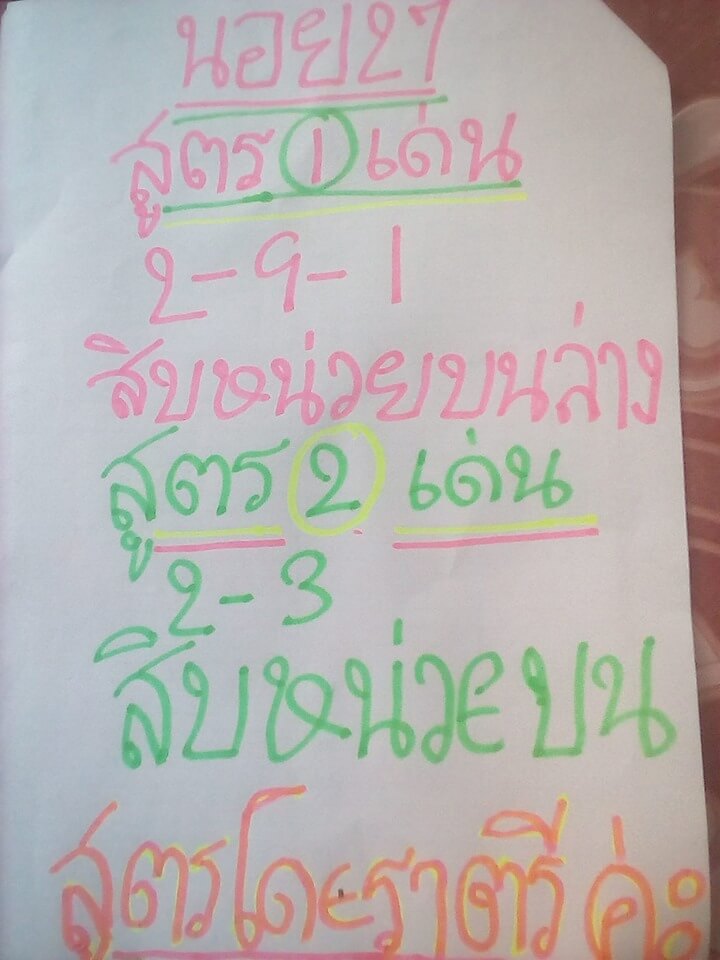 นอย27
สูตร 1 เด่น
2-9-1
สิบหน่วยบนล่าง
สูตร 2 เด่น
2-3
สิบหน่วยบน
สูตรโดยราตรีค่ะ